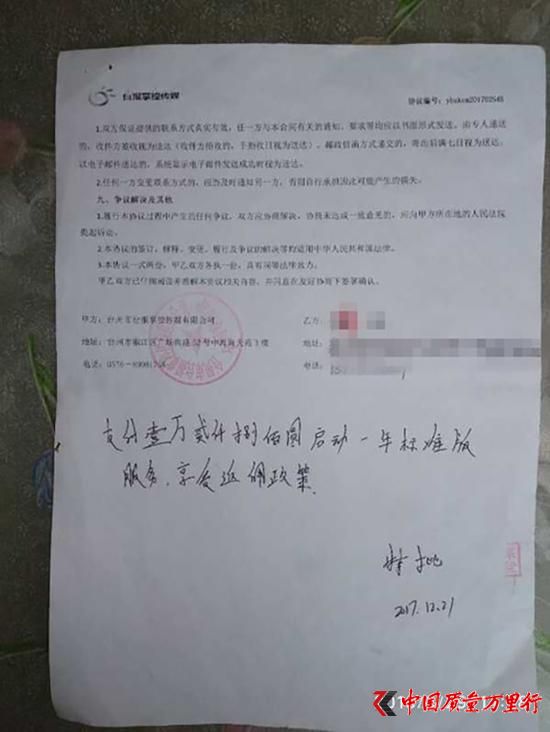 台报掌控传媒
协议编号：
1.双方保证提供的联系方式真实有效，任一方与本合同有关的通知、要求等均应以书面形式发送。由专人递送
的，收件方签收视为送达（收件方拒收的，于拒收日视为送达），邮政信函方式递交的，寄出后满七日视为送达；
以电子邮件送达的，系统显示电子邮件发送成功时视为送达。
2.任何一方变更联系方式的，应当及时通知另一方，否则自行承担因此可能产生的损失。
九、争议解决及其他
1.履行本协议过程中产生的任何争议，双方应协商解决，协商未达成一致意见的，应向甲方所在地的人民法院
提起诉讼。
2.本协议的签订、解释、变更、履行及争议的解决等均适用中华人民共和国法律。
3.本协议一式两份，甲乙双方各执一份，具有同等法律效力。
甲乙双方已仔细阅读并理解本协议相关内容，并同意在友好协商下签署确认。
甲方：台州市台报掌控传媒有限公司
乙方：
地址：台州市椒江区
地址：
电话：0576-
电话：
支付壹万贰仟捌佰圆启动一年标准版
服务，享受返佣政策
2017.12.21
中国质量万里行